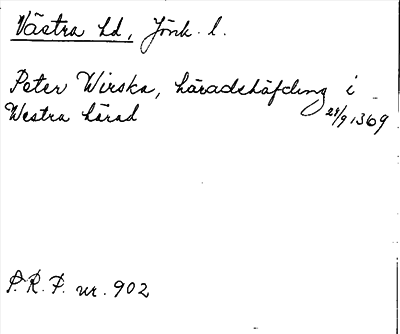 Västra hd, Jönk. l.
Peter Wirska, häradshäfding i
Westra härad 29/9 1369
P.R.P. nr. 902